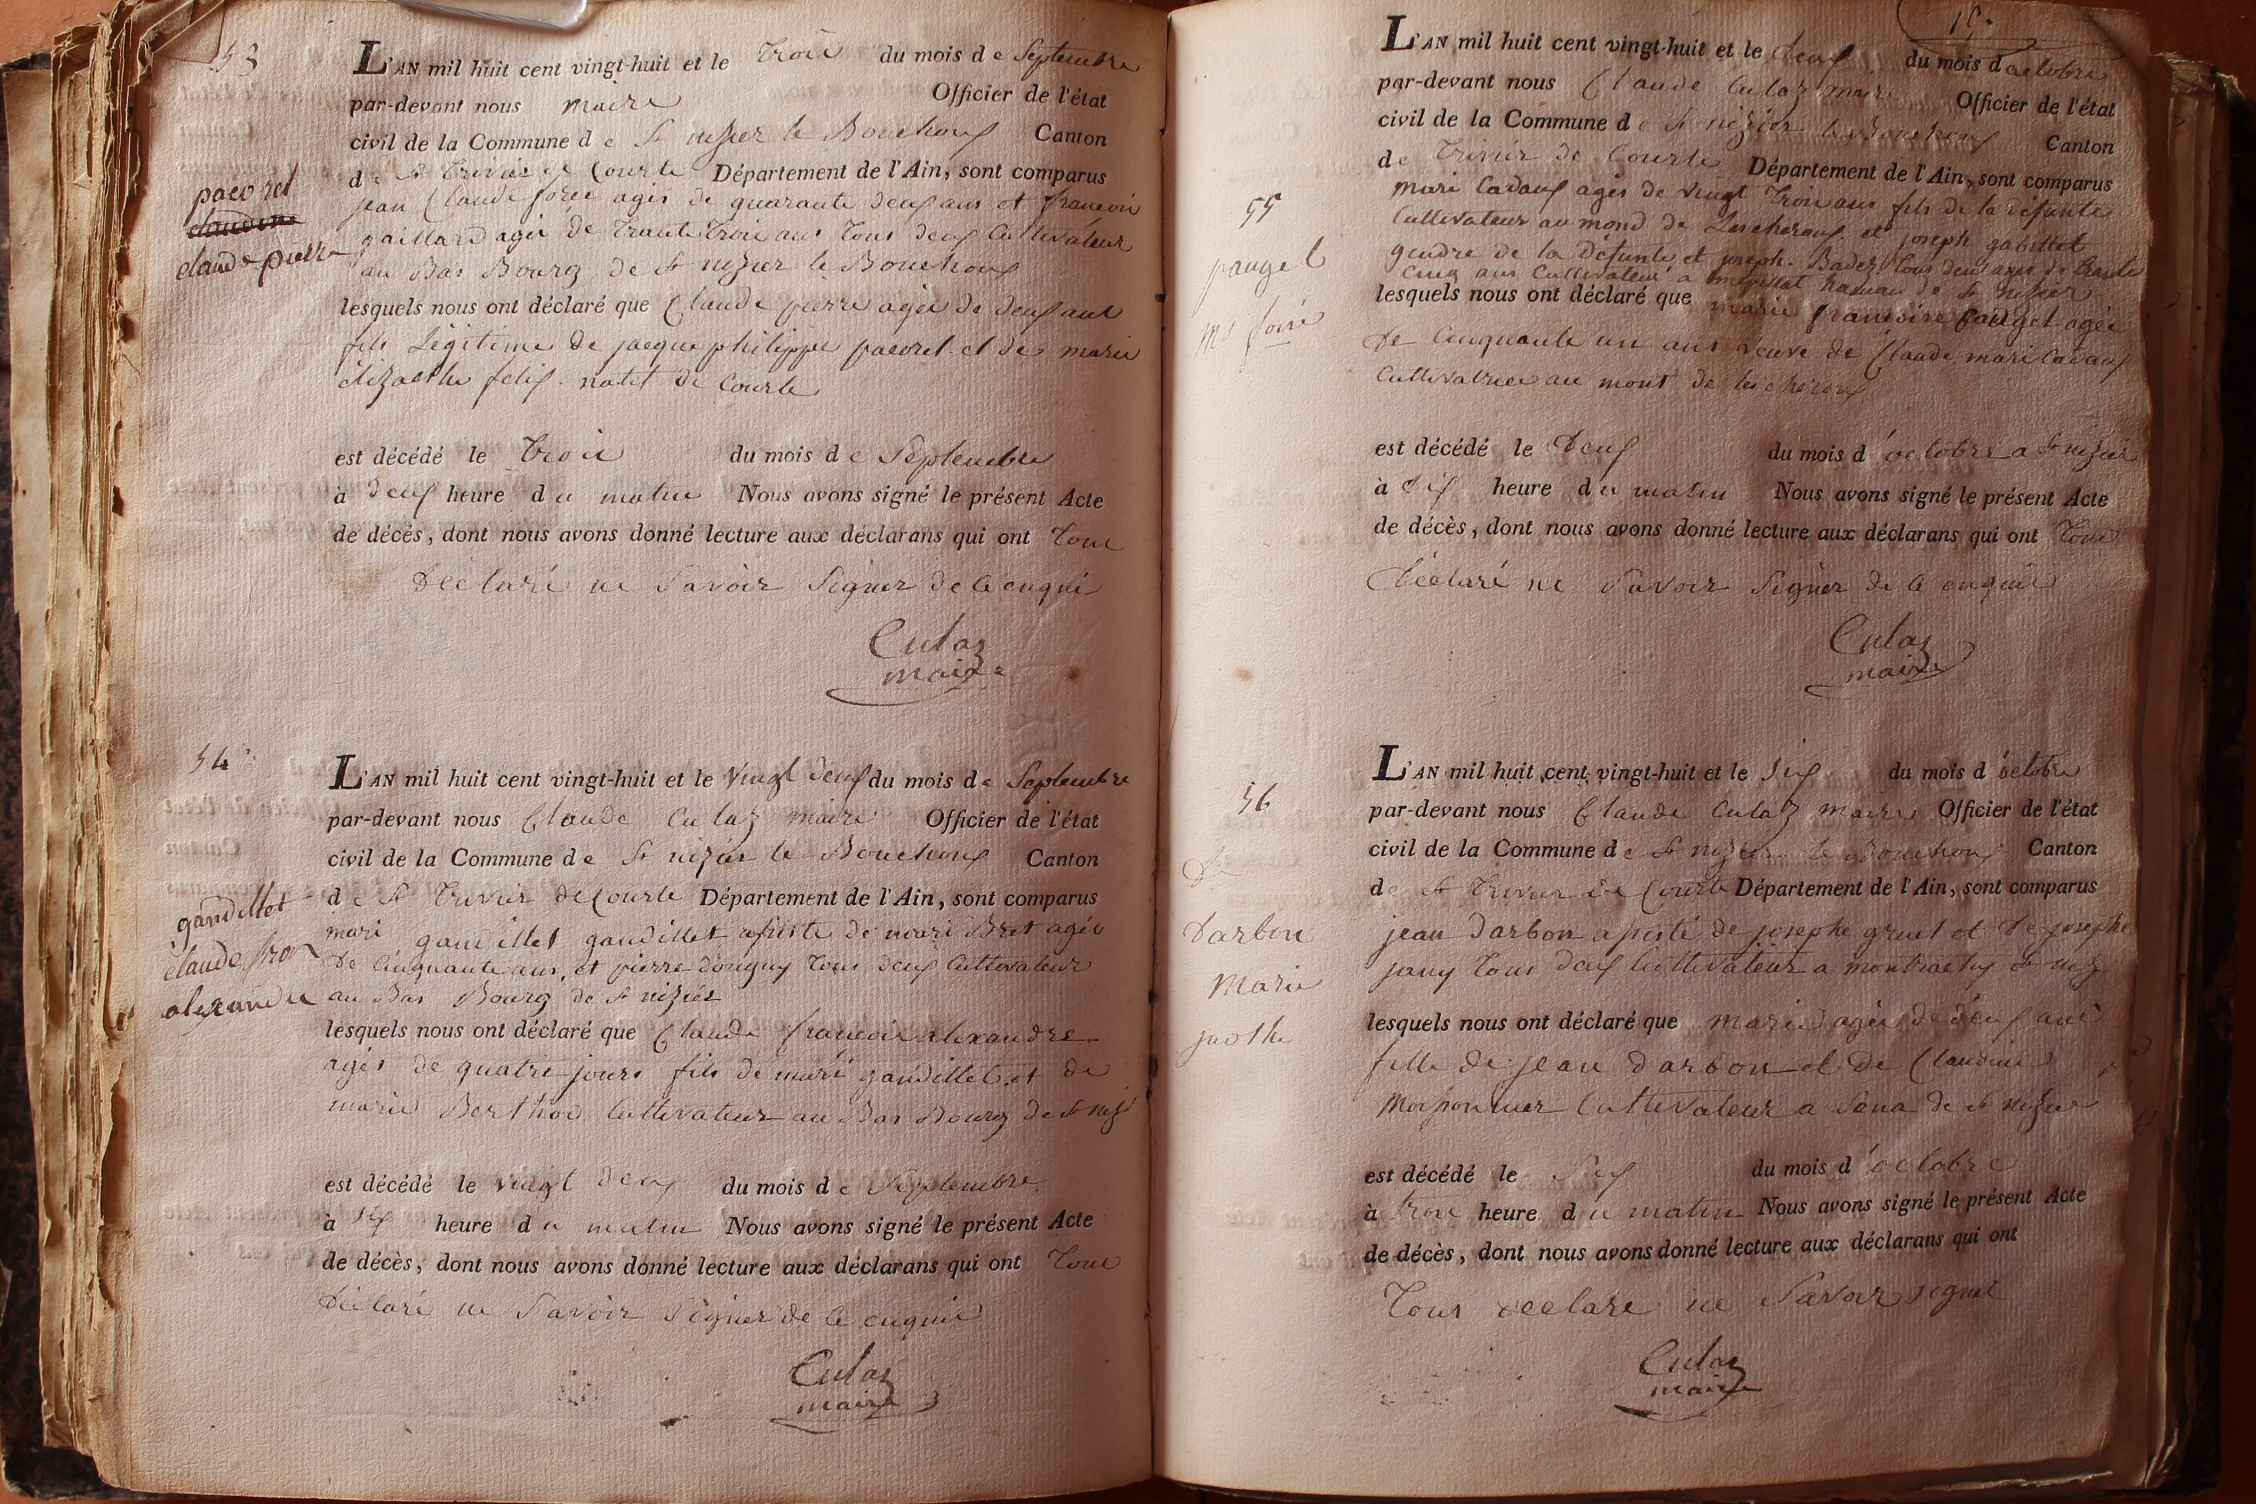 53
L'AN mil huit cent vingt-huit et le trois du mois de Septembre
par-devant nous maire Officier de l'état
civil de la Commune de St nizier le Bouchoux Canton
de St trivier de Courte Département de l'Ain, sont comparus
jean Claude agés de quarante deux ans et francois
gaillard agés de trante trois ans tous deux Cultivateur
au Bas Bourg de St nizier le Bouchoux
pacoret
claudine
claude pierre
lesquels nous ont déclaré que Claude pierre agés de deux ans
fils Légitime de jacque philippe pacoret et de marie
élizabeth felix natif de Courte
est décédé le trois du mois de Septembre
à deux heure du matin Nous avons signé le présent Acte
de décès, dont nous avons donné lecture aux déclarans qui ont tous
Déclaré ne Savoir Signer de ce enquis
Culaz
maire
54
L'AN mil huit cent vingt-huit et le vingt deux du mois de Septembre
par-devant nous Claude Culaz maire Officier de l'état
civil de la Commune de St nizier le Bouchoux Canton
de St trivier de Courte Département de l'Ain, sont comparus
mari gandillet gandillet de mari Bret agés
de Cinquante ans, et pierre tous deux Cultivateur
au Bas Bourg de St nizier
gandillet
claude fron
alexandre
lesquels nous ont déclaré que Claude francois alexandre
agés de quatre jours fils de mari gandillet et de
marie Berthod Cultivateur au Bas Bourg de St niz
est décédé le vingt deux du mois de Septembre
à six heure du matin Nous avons signé le présent Acte
de décès, dont nous avons donné lecture aux déclarans qui ont tous
Déclaré ne Savoir Signer de ce enquis
Culaz
maire
L'AN mil huit cent vingt-huit et le deux du mois d octobre
par-devant nous Claude Culaz maire Officier de l'état
civil de la Commune de St nizier le Bouchoux Canton
de trivier de Courte Département de l'Ain, sont comparus
mari Cadoux agés de vingt trois ans fils de la défunte
Cultivateur au mond de Lescheroux et joseph gabillet
gendre de la Défunte et joseph Badez tous deux agés de trante
cinq ans Cultivateur a hameau de St nizier
55
pauget
lesquels nous ont déclaré que marie francoise pauget agée
de Cinquante un ans veuve de Claude mari Cadoux
Cultivatrice au mont de lescheroux
est décédé le deux du mois d'octobre a St nizier
à dix heure du matin Nous avons signé le présent Acte
de décès, dont nous avons donné lecture aux déclarans qui ont tous
Déclaré ne Savoir Signer de ce enquis
Culaz
maire
56
L'AN mil huit cent vingt-huit et le six du mois d'octobre
par-devant nous Claude Culaz maire Officier de l'état
civil de la Commune de St nizier le Bouchoux Canton
de St trivier de Courte Département de l'Ain, sont comparus
Darbon
Marie
jean Darbon de josephe gruel et de josephe
jany tous deux Cultivateur a St niz
lesquels nous ont déclaré que marie agée de deux ans
fille de jean Darbon et de Claudine
Cultivateur a Sona de St nizier
est décédé le Six du mois d'octobre
à trois heure du matin Nous avons signé le présent Acte
de décès, dont nous avons donné lecture aux déclarans qui ont
tous déclare ne Savoir signer
Culaz
maire